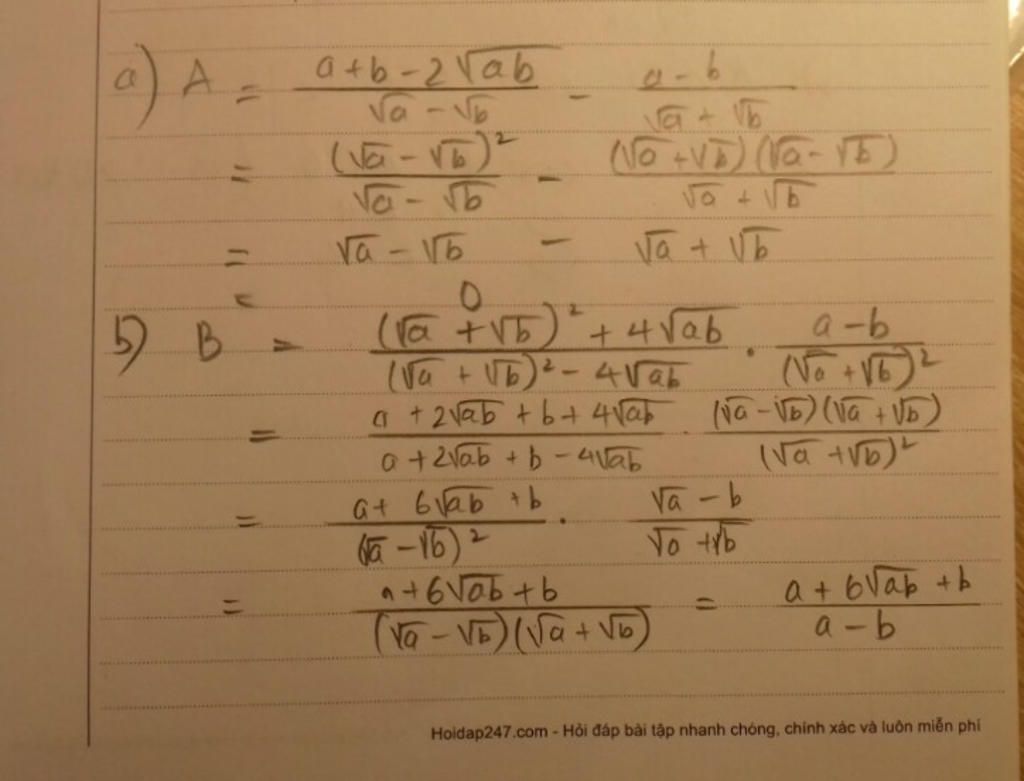 a) A = (a + b - 2√ab)/(√a - √b) - (a - b)/(√a + √b)
= (√a - √b)²/(√a - √b) - (√a + √b)(√a - √b)/(√a + √b)
= √a - √b - √a + √b
= 0
b) B = ((√a + √b)² + 4√ab)/((√a + √b)² - 4√ab) · (a - b)/(√a + √b)²
= (a + 2√ab + b + 4√ab)/(a + 2√ab + b - 4√ab) · (√a - √b)(√a + √b)/(√a + √b)²
= (a + 6√ab + b)/(√a - √b)² · (√a - b)/(√a + √b)
= (a + 6√ab + b)/((√a - √b)(√a + √b)) = (a + 6√ab + b)/(a - b)
Hoidap247.com - Hỏi đáp bài tập nhanh chóng, chính xác và luôn miễn phí